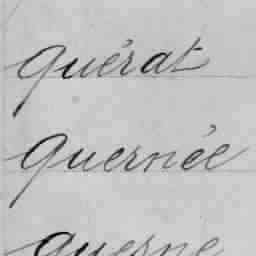 Guérat
Guernée
Guesne